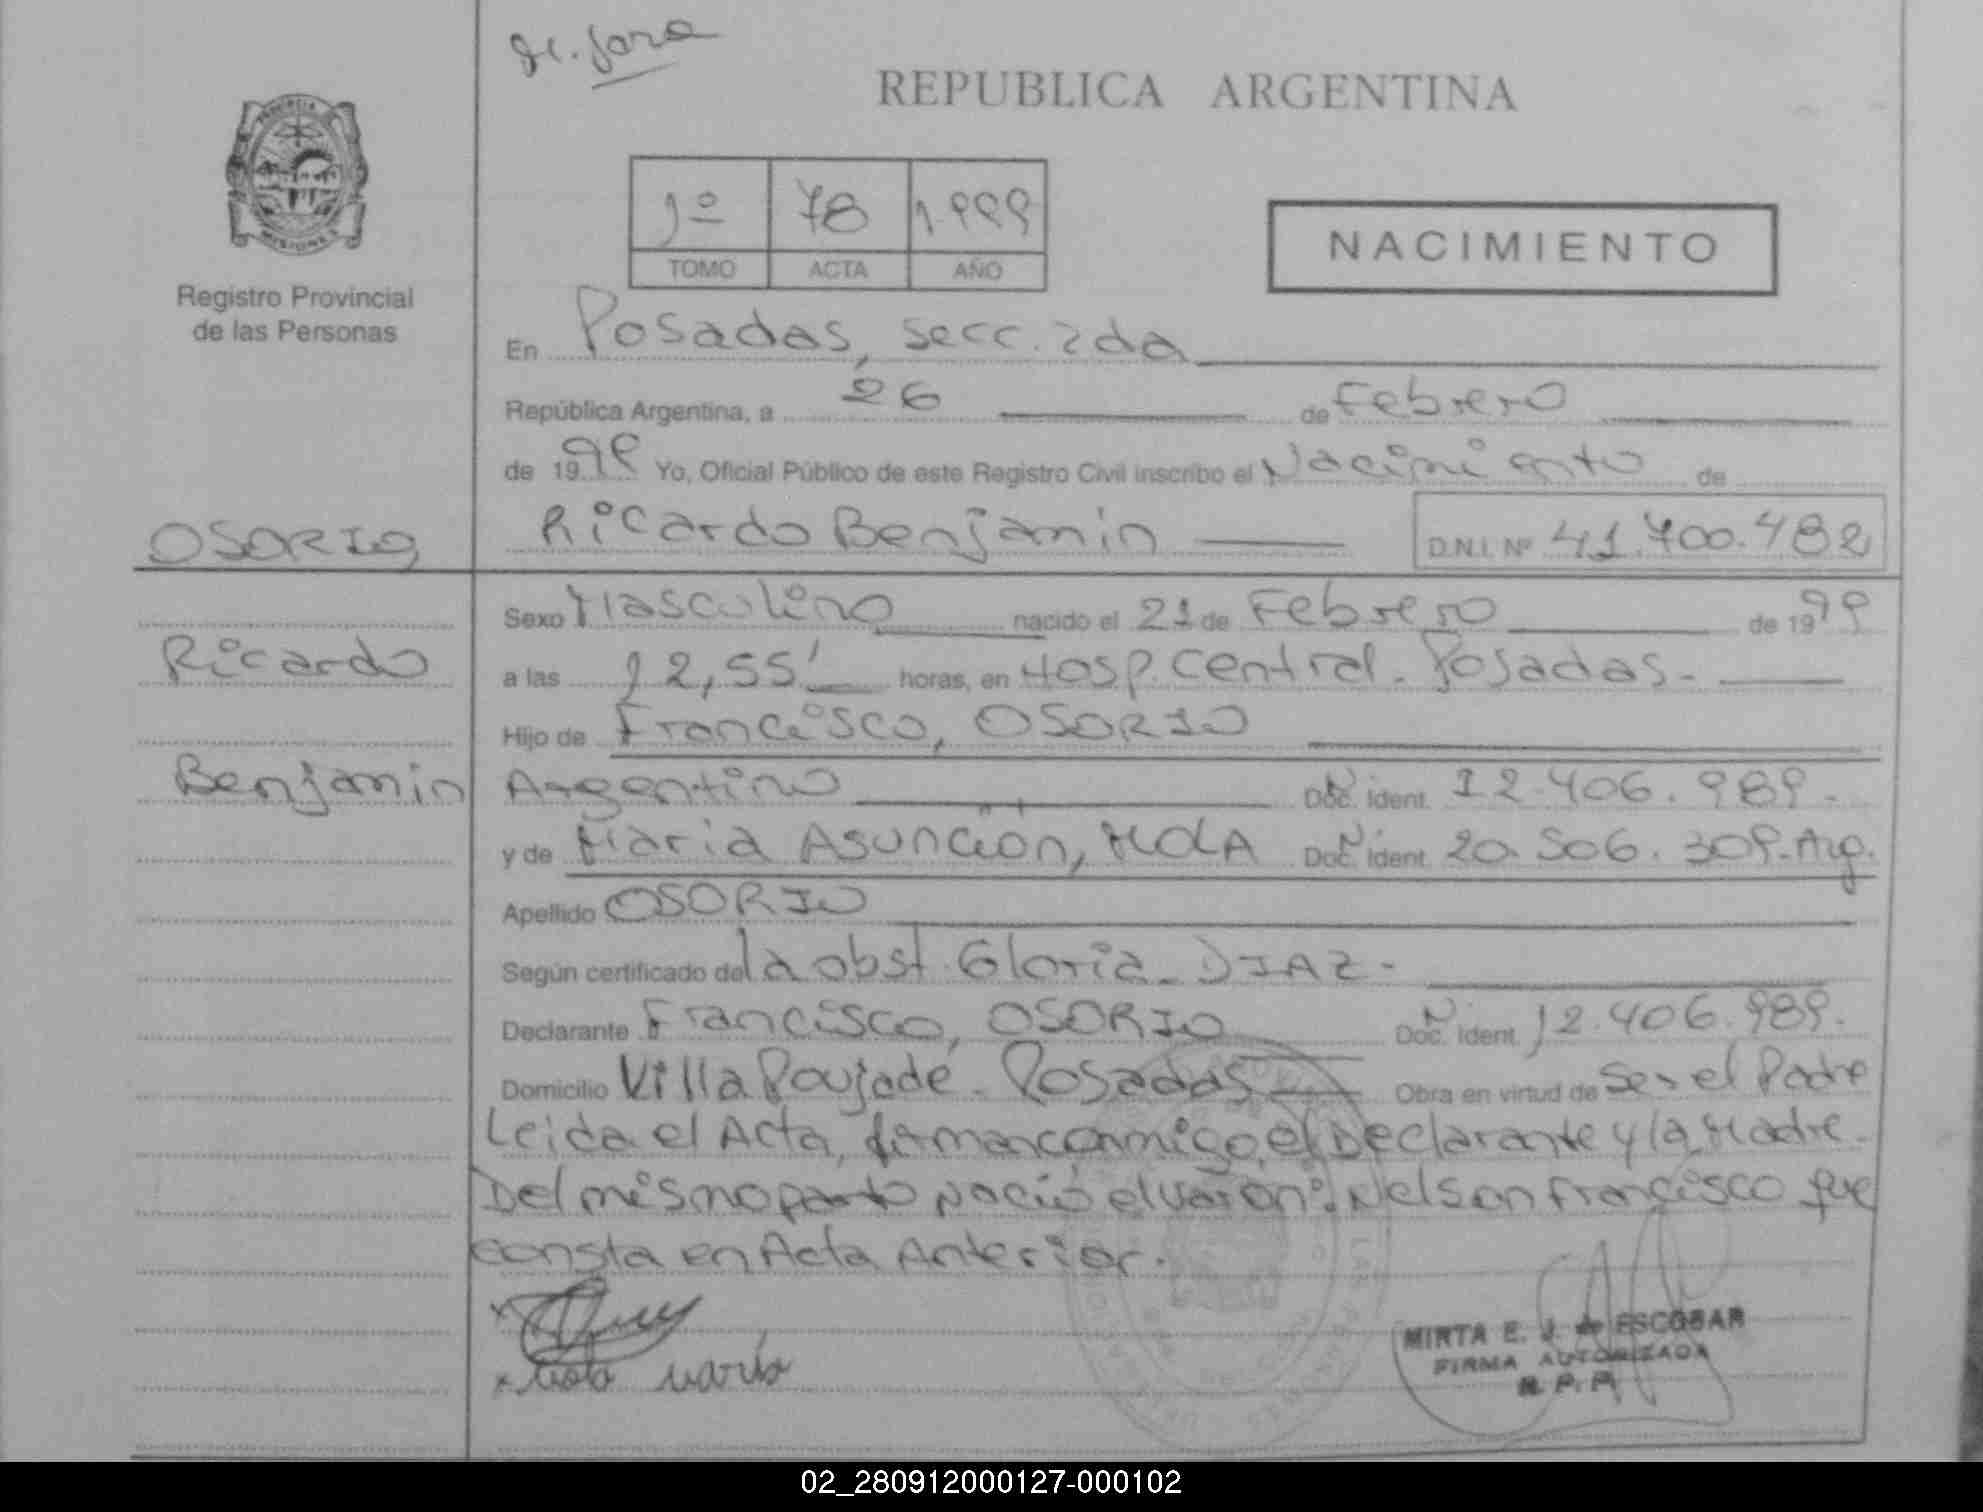 REPUBLICA ARGENTINA
PROVINCIA
MISIONES
1º 78 1.999
TOMO ACTA AÑO
NACIMIENTO
Registro Provincial
de las Personas
En Posadas, Secc. 2da
República Argentina, a 26 de Febrero
de 1999 Yo, Oficial Público de este Registro Civil inscribo el Nacimiento de
OSORIO, Ricardo Benjamin D.N.I. Nº 41.700.482
Sexo Masculino nacido el 21 de Febrero de 1999
Ricardo a las 12,55' horas, en Hosp. Central. Posadas.-
Hijo de Francisco, OSORIO
Benjamin Argentino Doc. Ident. N 12.406.989.
y de Maria Asunción, MOLA Doc. Ident. N 20.506.309.Arg.
Apellido OSORIO
Según certificado de la obst. Gloria - DIAZ -
Declarante Francisco, OSORIO Doc. Ident. N 12.406.989.
Domicilio Villa Poujade - Posadas Obra en virtud de Ser el Padre
Leida el Acta, firman conmigo, el Declarante y la Madre.
Del mismo parto Nació el Varon: Nelson Francisco que
consta en Acta Anterior.
x Mola María
MIRTA E. J. de ESCOBAR
FIRMA AUTORIZADA
R. P. P.
02_280912000127-000102